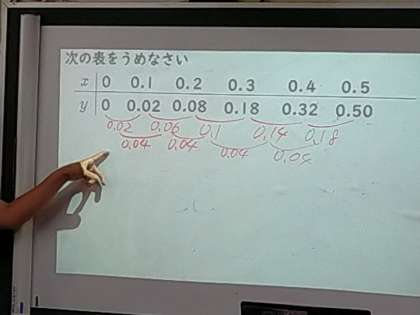 次の表をうめなさい
x 0 0.1 0.2 0.3 0.4 0.5
y 0 0.02 0.08 0.18 0.32 0.50
0.02 0.06 0.1 0.14 0.18
0.04 0.04 0.04 0.04